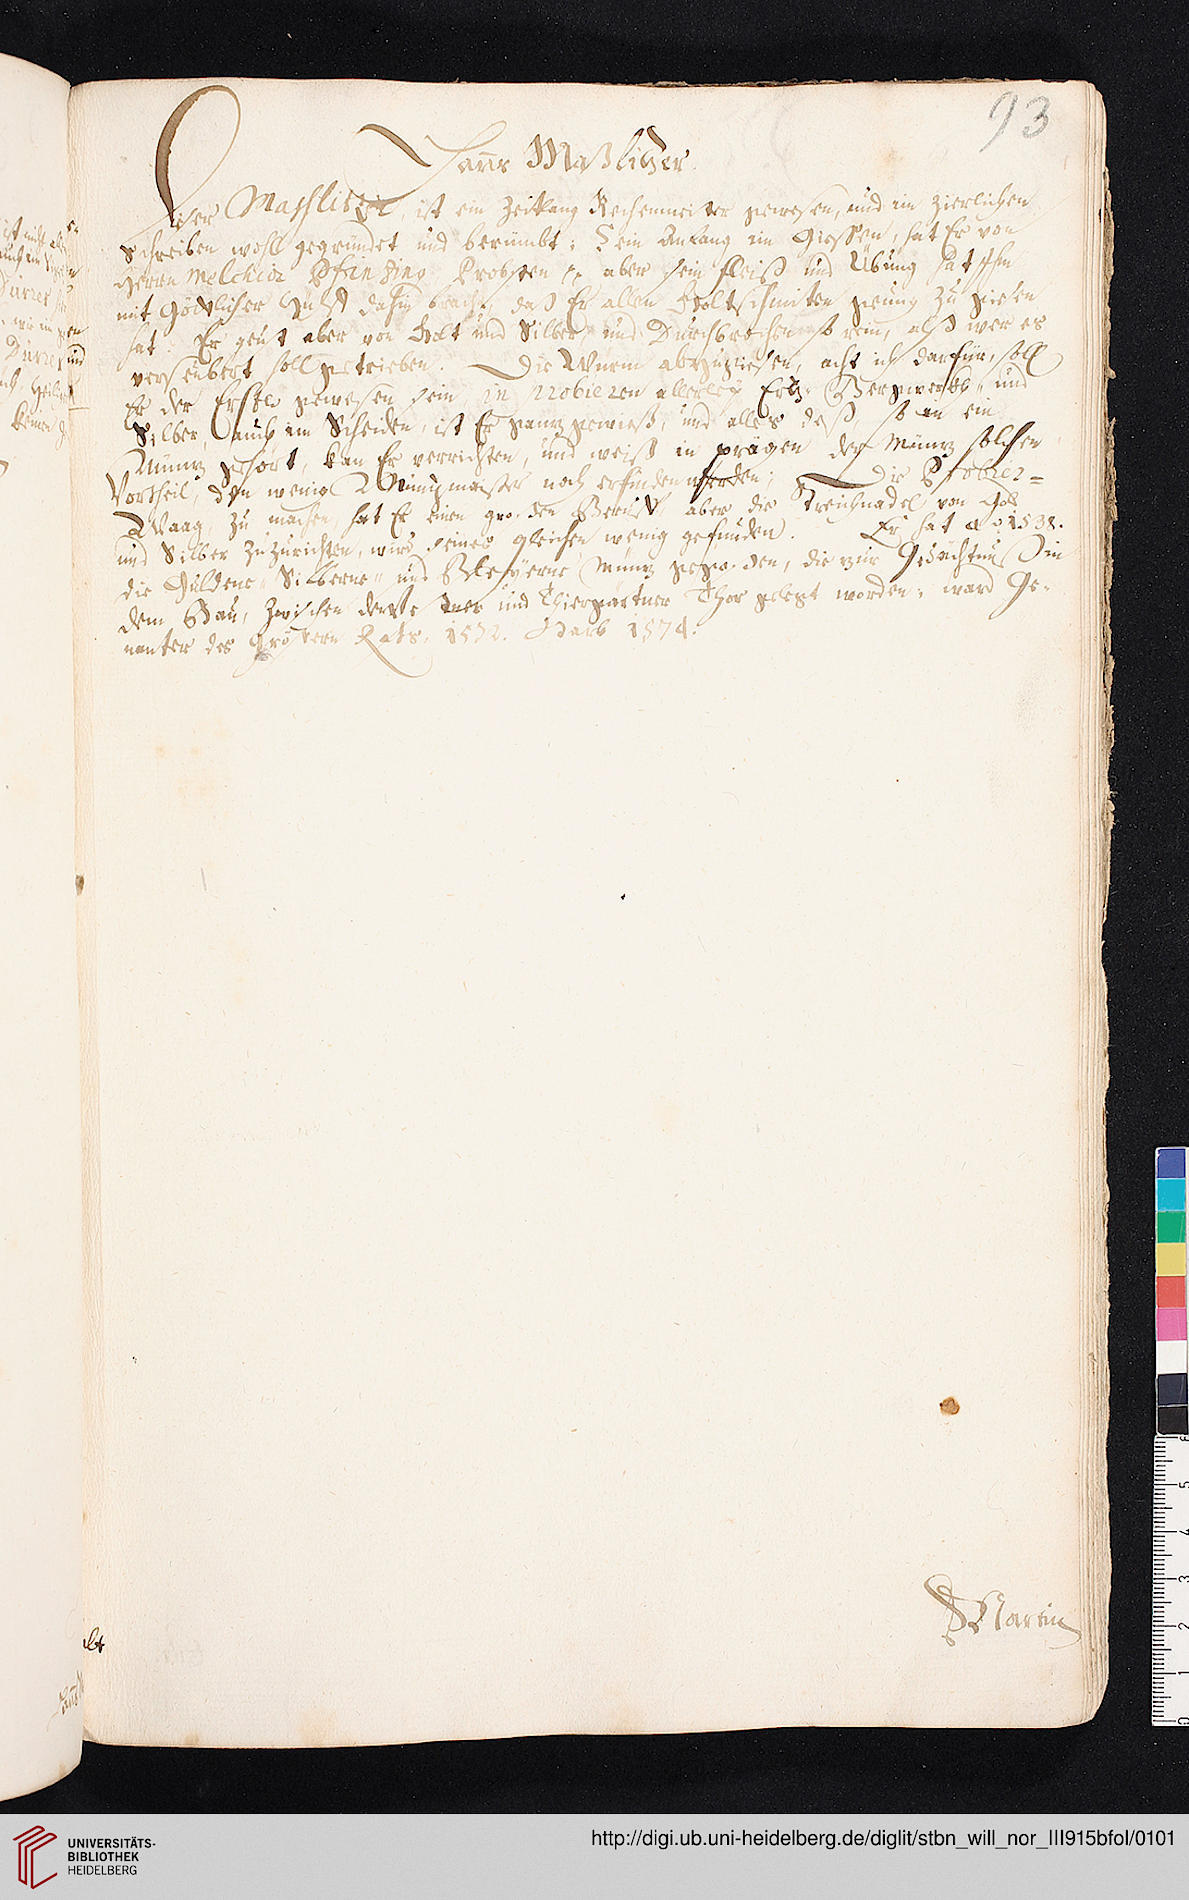 93
Hanns Maßlitzer.
Dieser Maßlitzer, ist ein Zeitlang Rechenmeister gewesen, und im Zierlichen
Schreiben wohl gegründet und berümbt; Sein Anfang im Giessen, hat Er von
Herrn Melchior Pfinzing Probsten aber sein fleiß und Übung hat Ihn
mit Göttlicher hülff dahin bracht, daß Er allen Goltschmiten genung zu giesen
hat. Er geust aber von Golt und Silber, und Durchbrochen so rein, alß wer es
verseubert soll getrieben. Die Würm abzugiesen, acht ich darfür, soll
Er der Erste gewesen sein in Probieren allerley Ertz Bergwerkh, und
Silber, auch im Scheiden, ist Er gantz gewieß, und alles deß, so an ein
Müntz gehört, kan Er verrichten, und weiß in prägen der Müntz solchen
Vortheil, den wenig Müntzmaister noch erfinden werden; Die Probier-
Waag, zu machen, hat Er einen großen Beruff aber die Streichnadel von Gol
und Silber zuzurichten, wird seines gleichen wenig gefunden. Er hat ao 1538.
die Güldene, Silberne, und Bleyerne Müntz gegossen, die zur Gedächtnus in
dem Bau, zwischen der Vestner und Thiergärtner Thor gelegt worden; ward Ge-
nanter des Grössern Rats, 1532. Starb 1574.
Martin
UNIVERSITÄTS-
BIBLIOTHEK
HEIDELBERG
http://digi.ub.uni-heidelberg.de/diglit/stbn_will_nor_III915bfol/0101